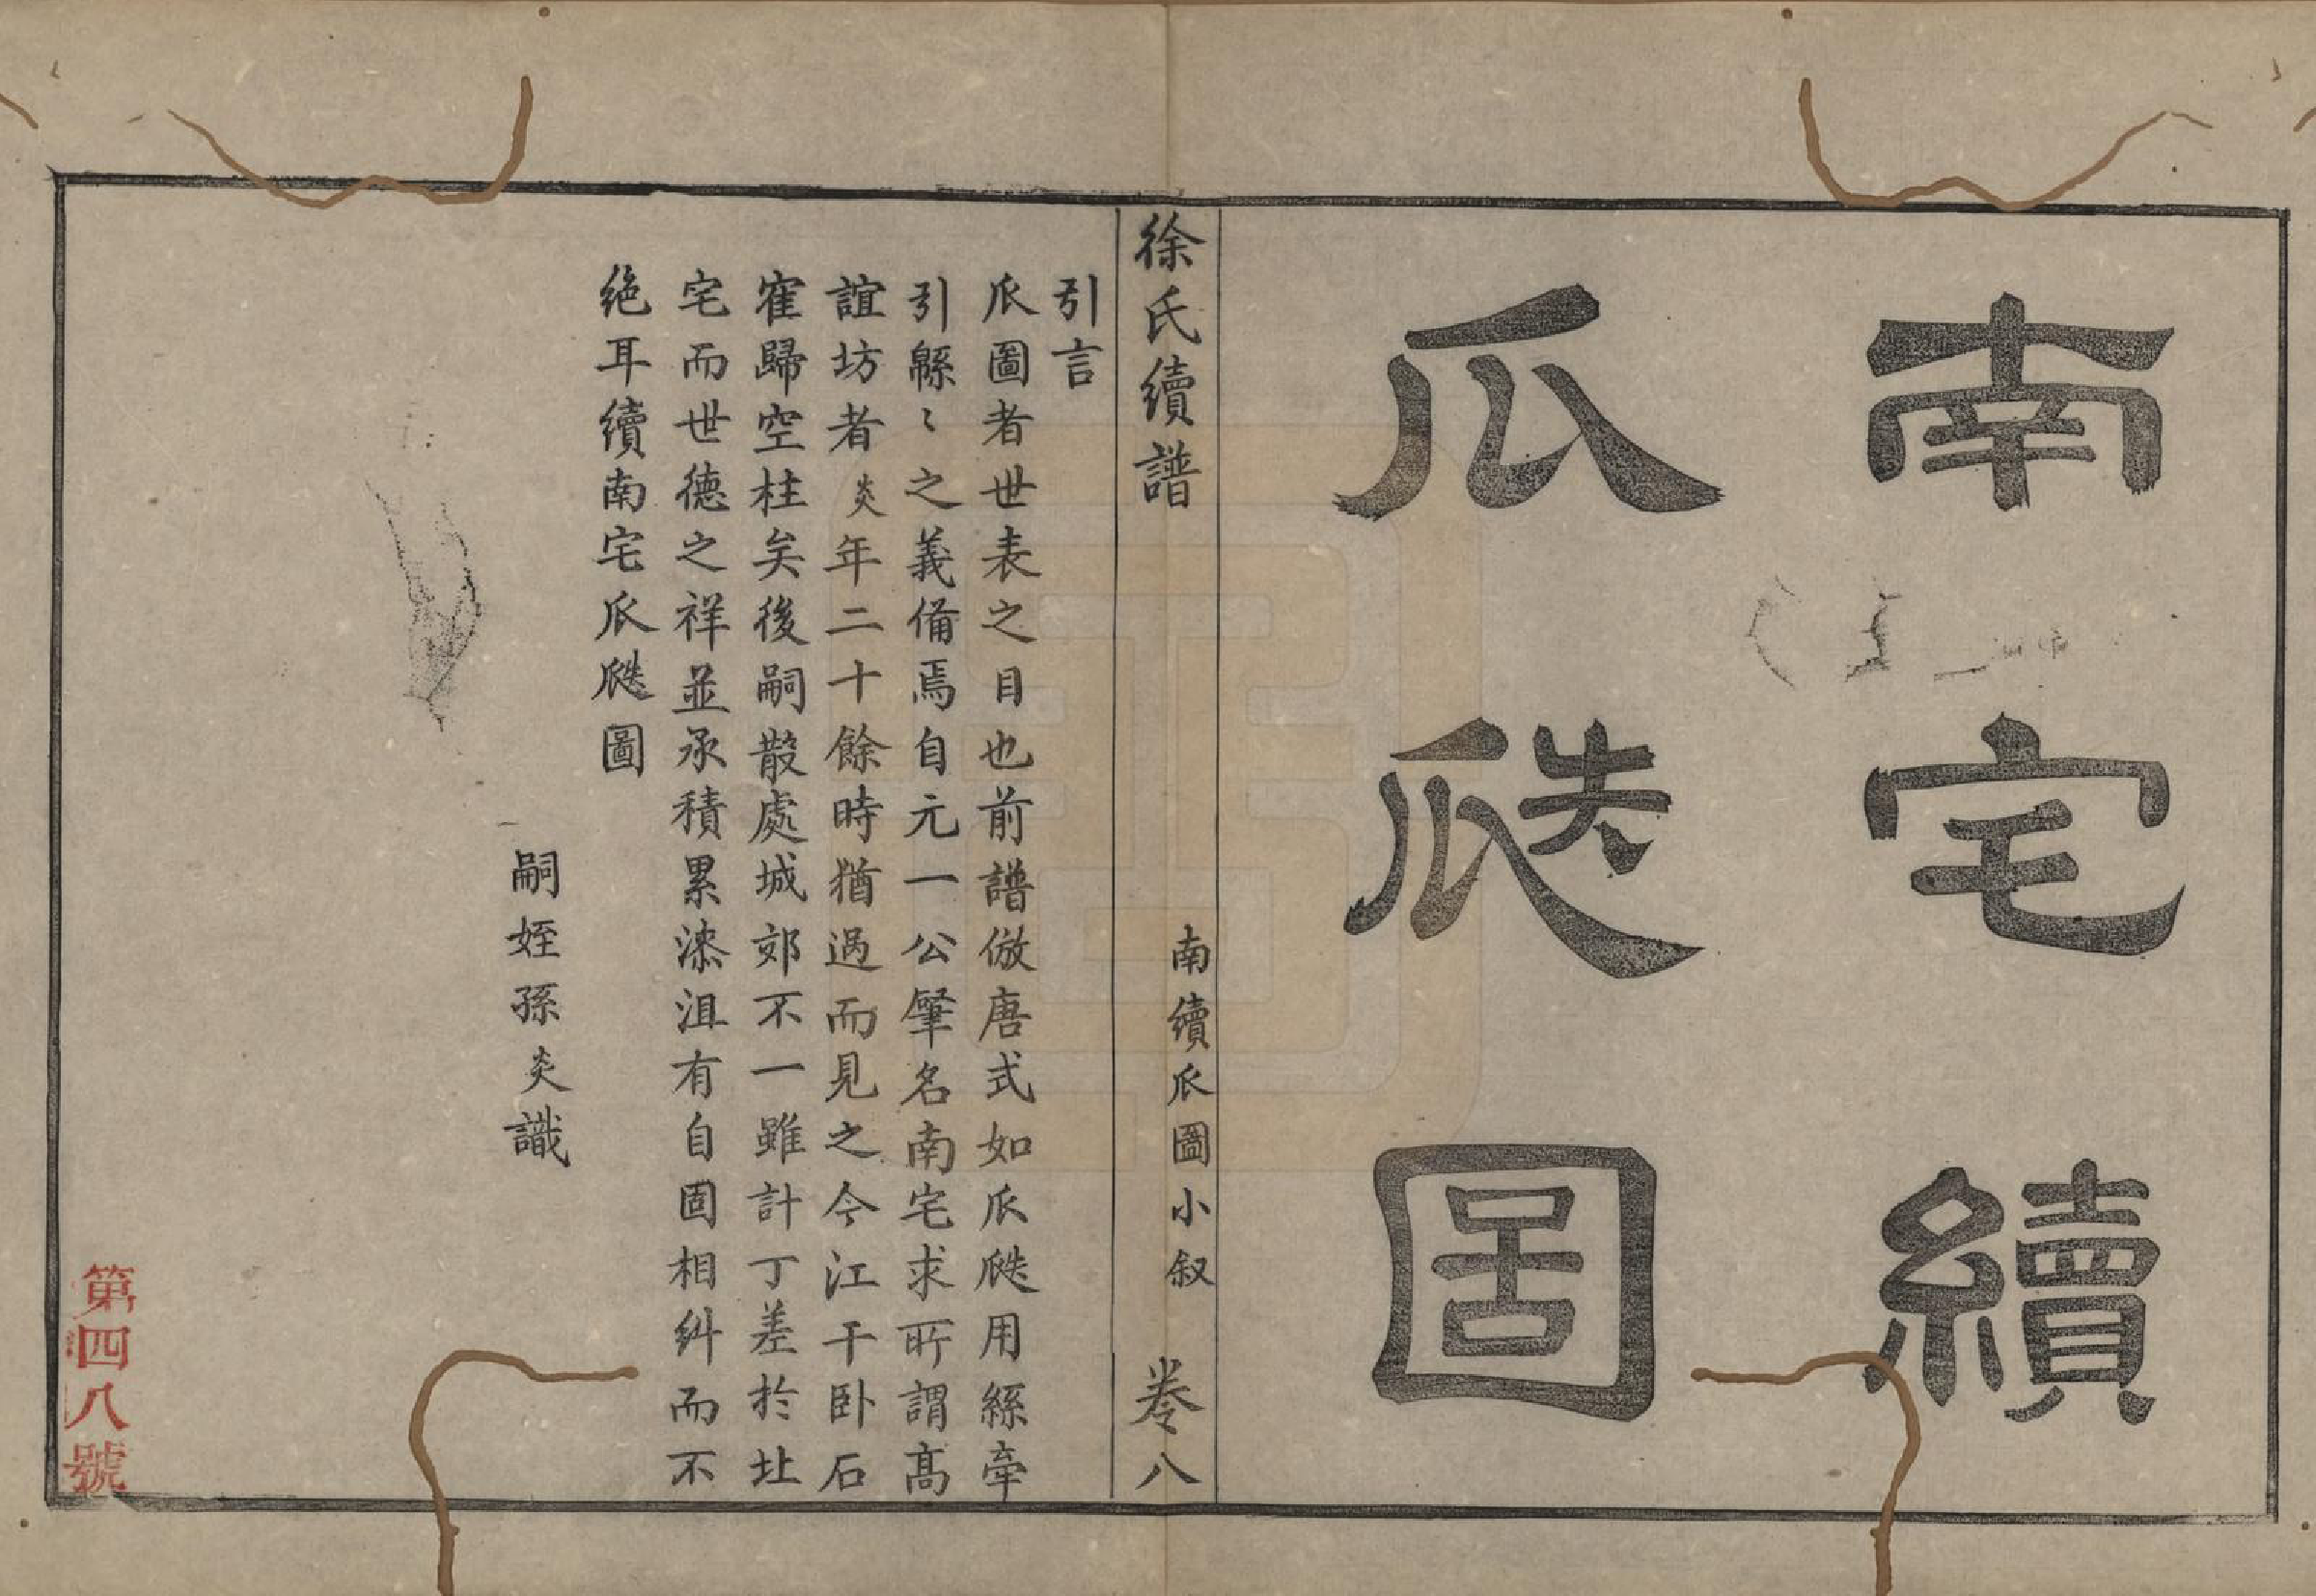 南宅續
瓜瓞圖
徐氏續譜
南續瓜圖小叙
卷八
引言
瓜圖者世表之目也前譜倣唐式如瓜瓞用絲牽
引緜〻之義備焉自元一公肇名南宅求所謂高
誼坊者炎年二十餘時猶過而見之今江干卧石
寉歸空柱矣後嗣散處城郊不一雖計丁差於北
宅而世德之祥並承積累漆沮有自固相糾而不
绝耳續南宅瓜瓞圖
嗣姪孫炎識
第四八號